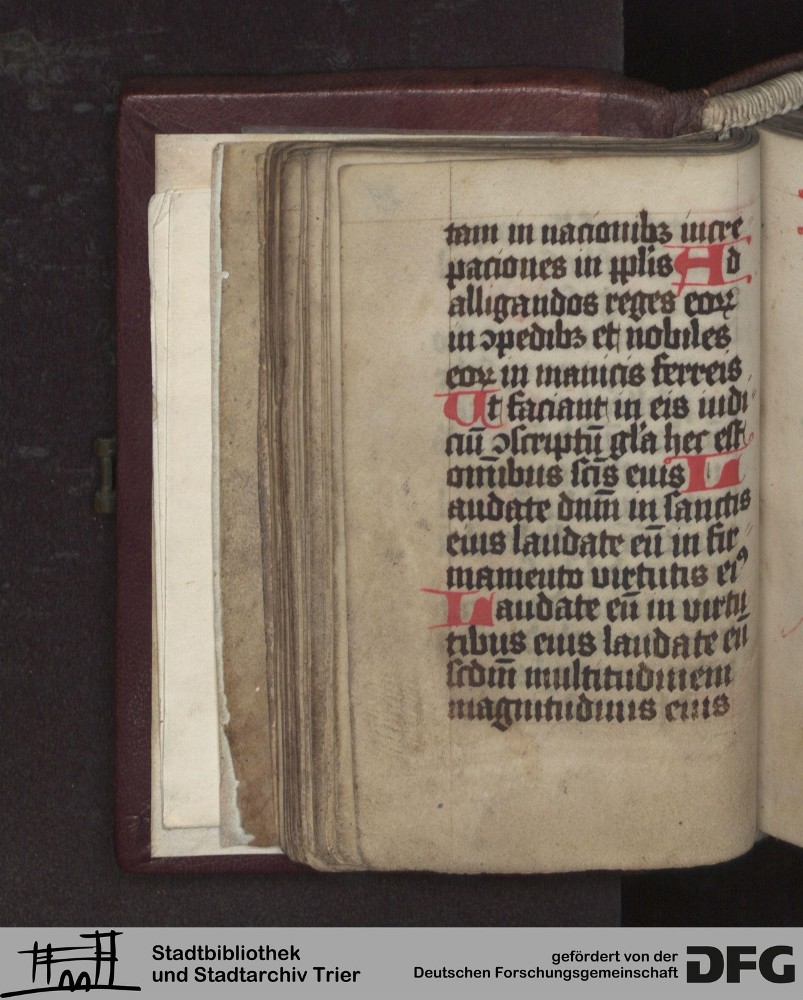 tam in nacionibꝫ incre
paciones in pp̄lis Ad
alligandos reges eoꝝ
in ꝯpedibꝫ et nobiles
eoꝝ in manicis ferreis
Ut faciant in eis iudi
ciū ꝯscriptū gl'a hec est
om̄ibus sc̄is eius L
audate dn̄m in sanctis
eius laudate eū in fir
mamento virtutis eiꝰ
Laudate eū in virtu
tibus eius laudate eū
scd̄m multitudinem
magnitudinis eius
Stadtbibliothek
und Stadtarchiv Trier
gefördert von der
Deutschen Forschungsgemeinschaft
DFG